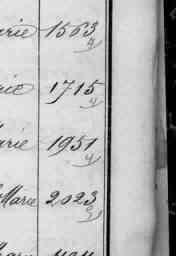 arie 1563
4
rie 1715
4
Marie 1951
4
Marie 2023
3